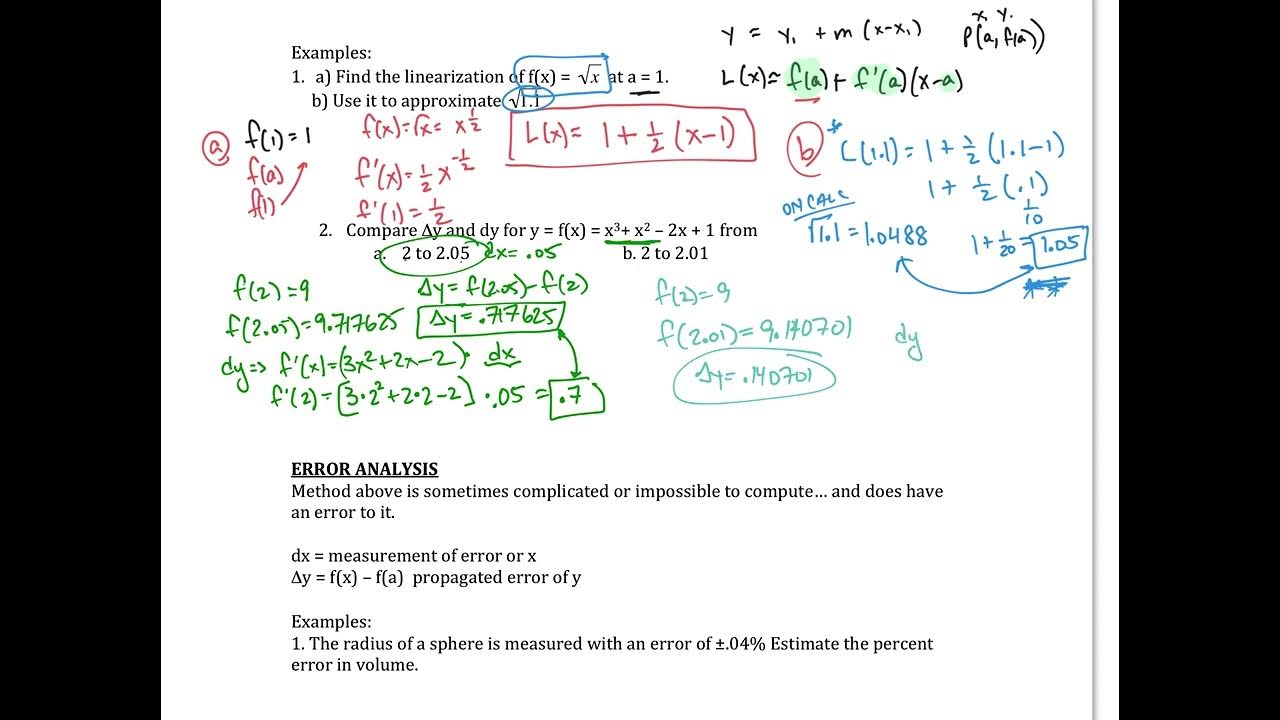 y = y₁ + m (x-x₁)
x₁ y₁
P(a, f(a))
Examples:
1. a) Find the linearization of f(x) = √x at a = 1.
L(x) ≈ f(a) + f'(a)(x-a)
b) Use it to approximate √1.1
ⓐ f(1) = 1
f(a)
f(1)
f(x)=√x = x^1/2
f'(x) = 1/2 x^-1/2
f'(1) = 1/2
L(x) = 1 + 1/2 (x-1)
ⓑ * L(1.1) = 1 + 1/2 (1.1-1)
1 + 1/2 (.1)
1/10
1 + 1/20 = 1.05
ON CALC
√1.1 = 1.0488
2. Compare Δy and dy for y = f(x) = x³+ x² – 2x + 1 from
a. 2 to 2.05 dx = .05 b. 2 to 2.01
f(2) = 9
f(2.05) = 9.717625
Δy = f(2.05) - f(2)
Δy = .717625
dy ⇒ f'(x) = (3x²+2x-2) · dx
f'(2) = [3·2²+2·2-2] · .05 = .7
f(2) = 9
f(2.01) = 9.140701
Δy = .140701
dy
ERROR ANALYSIS
Method above is sometimes complicated or impossible to compute… and does have
an error to it.
dx = measurement of error or x
Δy = f(x) – f(a) propagated error of y
Examples:
1. The radius of a sphere is measured with an error of ±.04% Estimate the percent
error in volume.